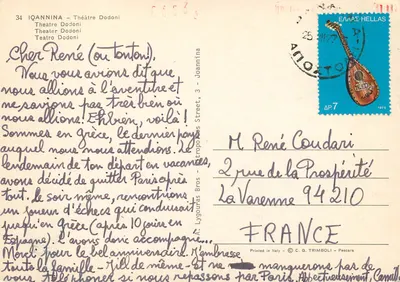 34 IOANNINA - Théâtre Dodoni
Theatre Dodoni
Theater Dodoni
Teatro Dodoni
Cher René (ou tonton).
Nous vous avions dit que
nous allions à l'aventure et
ne savions pas très bien où
nous allions! Eh bien, voilà!
Sommes en grèce, le dernier pays
auquel nous nous attendions. Le
lendemain de ton départ en vacances,
avons décidé de quitter Paris après
tout. le soir même, rencontrions
un joueur d'échecs qui conduisait
jusqu'en Grèce (après 10 jours en
Espagne). l'avons donc accompagné...
Merci pour le bel anniversaire! M'embrasse
toute la famille - Jill de même - et ne manquerons pas de
vous téléphoner si nous repassons par Paris. Affectueusement, Camill
Lygouras Bros - Street, 3 - Joannina
ΕΛΛΑΣ-HELLAS
ΔΡ 7
25
M. René Coudari
2 rue de la Prospérité
La Varenne 94210
FRANCE
Printed in Italy - © C. G. TRIMBOLI - Pescara